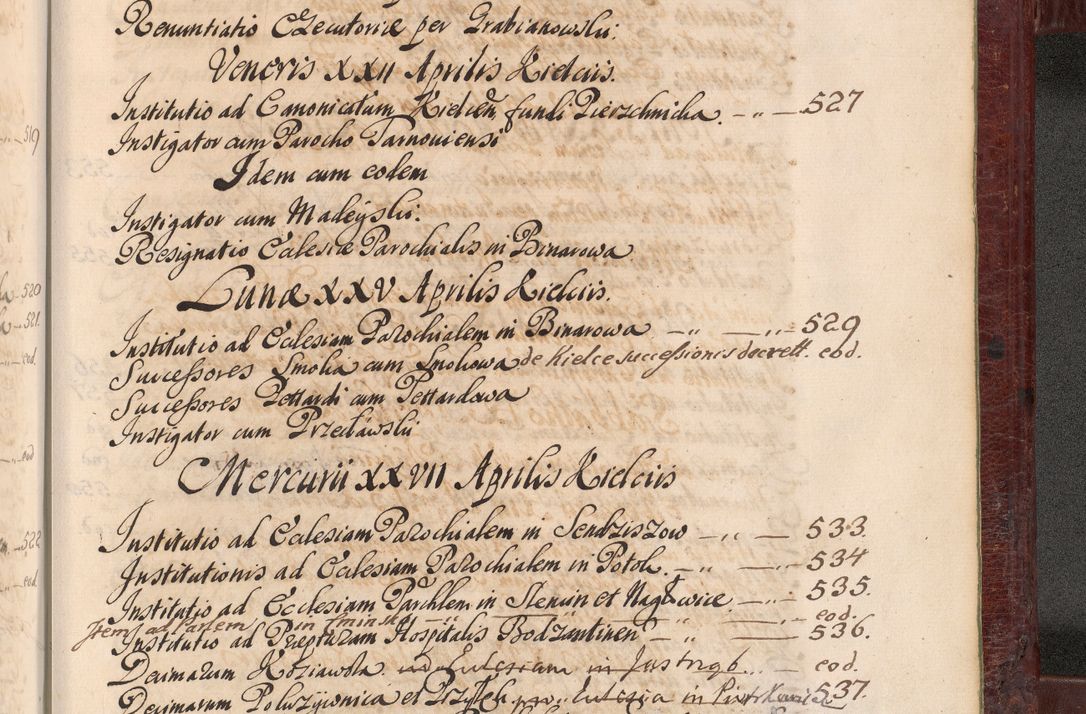 Renuntiatio Executoriæ per Grabianowski:
Veneris XXII Aprilis Kielciis.
Institutio ad Canonicatum Kielcen fundi Pierzchnicka. - „ — 527
Instigator cum Parocho Tarnoviensi
Idem cum eodem
Instigator cum Madeyski:
Resignatio Ecclesiæ Parochialis in Binarowa
Lunæ XXV Aprilis Kielciis.
Institutio ad Ecclesiam Parochialem in Binarowa — „ — „ - 529
Successores Smolka cum de Kielce successionis decrett. eod.
Successores Pettardi cum Pettardowa
Instigator cum Przecławski
Mercurii XXVII Aprilis Kielciis
Institutio ad Ecclesiam Parochialem in Sendziszow — „ — 533.
Institutionis ad Ecclesiam Parochialem in Potok. — „ — 534
Institutio ad Ecclesiam Parchlem in et Nagłowice — „ — 535.
Item ad in — „ — „ — eod.
Institutio ad Præpturam Hospitalis Bodzantinen — „ — 536.
Decimarum in — eod.
Decimarum et pro Ecclesia in 537.
519
520
521.
eod.
eod
522
eod